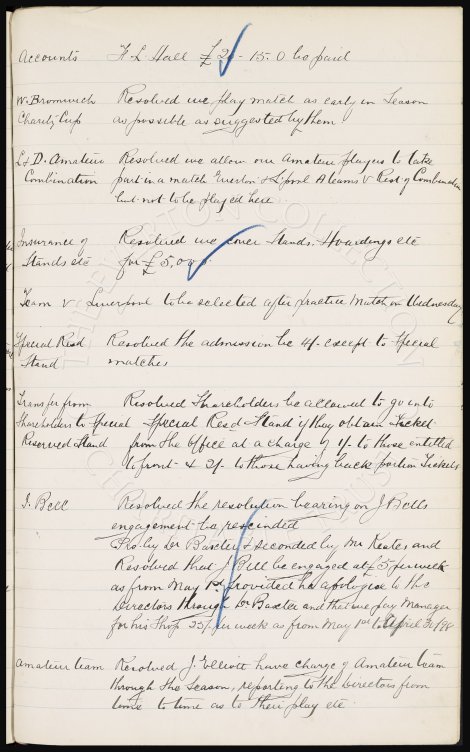 Accounts F. L. Hall £2 - 15. 0 be paid
W. Bromwich Resolved we play match as early in Season
Charity Cup as possible as suggested by them
L & D. Amateur Resolved we allow our Amateur players to take
Combination part in a match Everton & L'pool A teams v Rest of Combination
but not to be played here
Insurance of Resolved we cover Stands. Hoardings etc
Stands etc for £5,000.
Team v Liverpool to be selected after practice match on Wednesday
Special Resd Resolved the admission be 4/- except to Special
Stand matches
Transfer from Resolved Shareholders be allowed to go into
Shareholders to Special Special Resd Stand if they obtain Ticket
Reserved Stand from the office at a charge of 1/- to those entitled
to front & 2/- to those having back portion Tickets
J. Bell Resolved the resolution bearing on J Bells
engagement be rescinded
Pro. by Dr Baxter & seconded by Mr Keates and
Resolved that J Bell be engaged at £5 per week
as from May 1st provided he apologise to the
Directors through Dr Baxter and that we pay Manager
for his shop 35/- per week as from May 1st to April 30/98
Amateur team Resolved J. Elliott have charge of Amateur team
through the Season, reporting to the Directors from
time to time as to their play etc
THE EVERTON COLLECTION